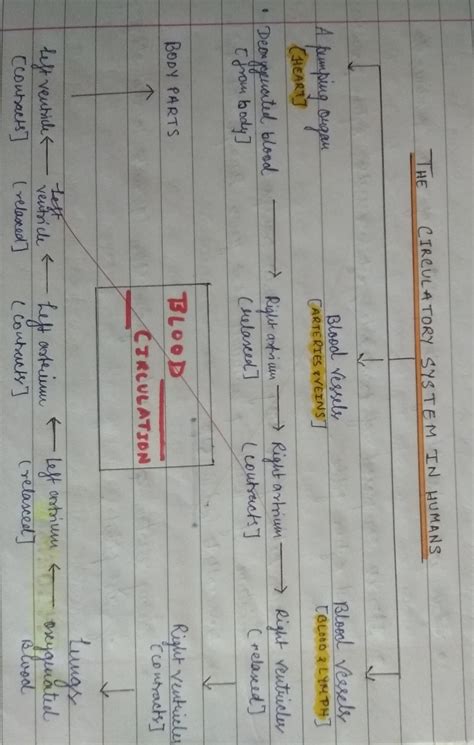 THE CIRCULATORY SYSTEM IN HUMANS
A pumping organ
[HEART]
Blood vessels
[ARTERIES & VEINS]
Blood vessels
[BLOOD & LYMPH]
• Deoxygenated blood → Right artrium → Right artrium → Right ventricles
[from body]
(relaxed]
(contracts]
(relaxed]
BODY PARTS
BLOOD
CIRCULATION
Right ventricles
[contracts]
Lungs
Left ventricle ← Left ventricle ← Left arterium ← Left artrium ← oxygenated Blood
[contracts]
(relaxed]
(contracts]
(relaxed]